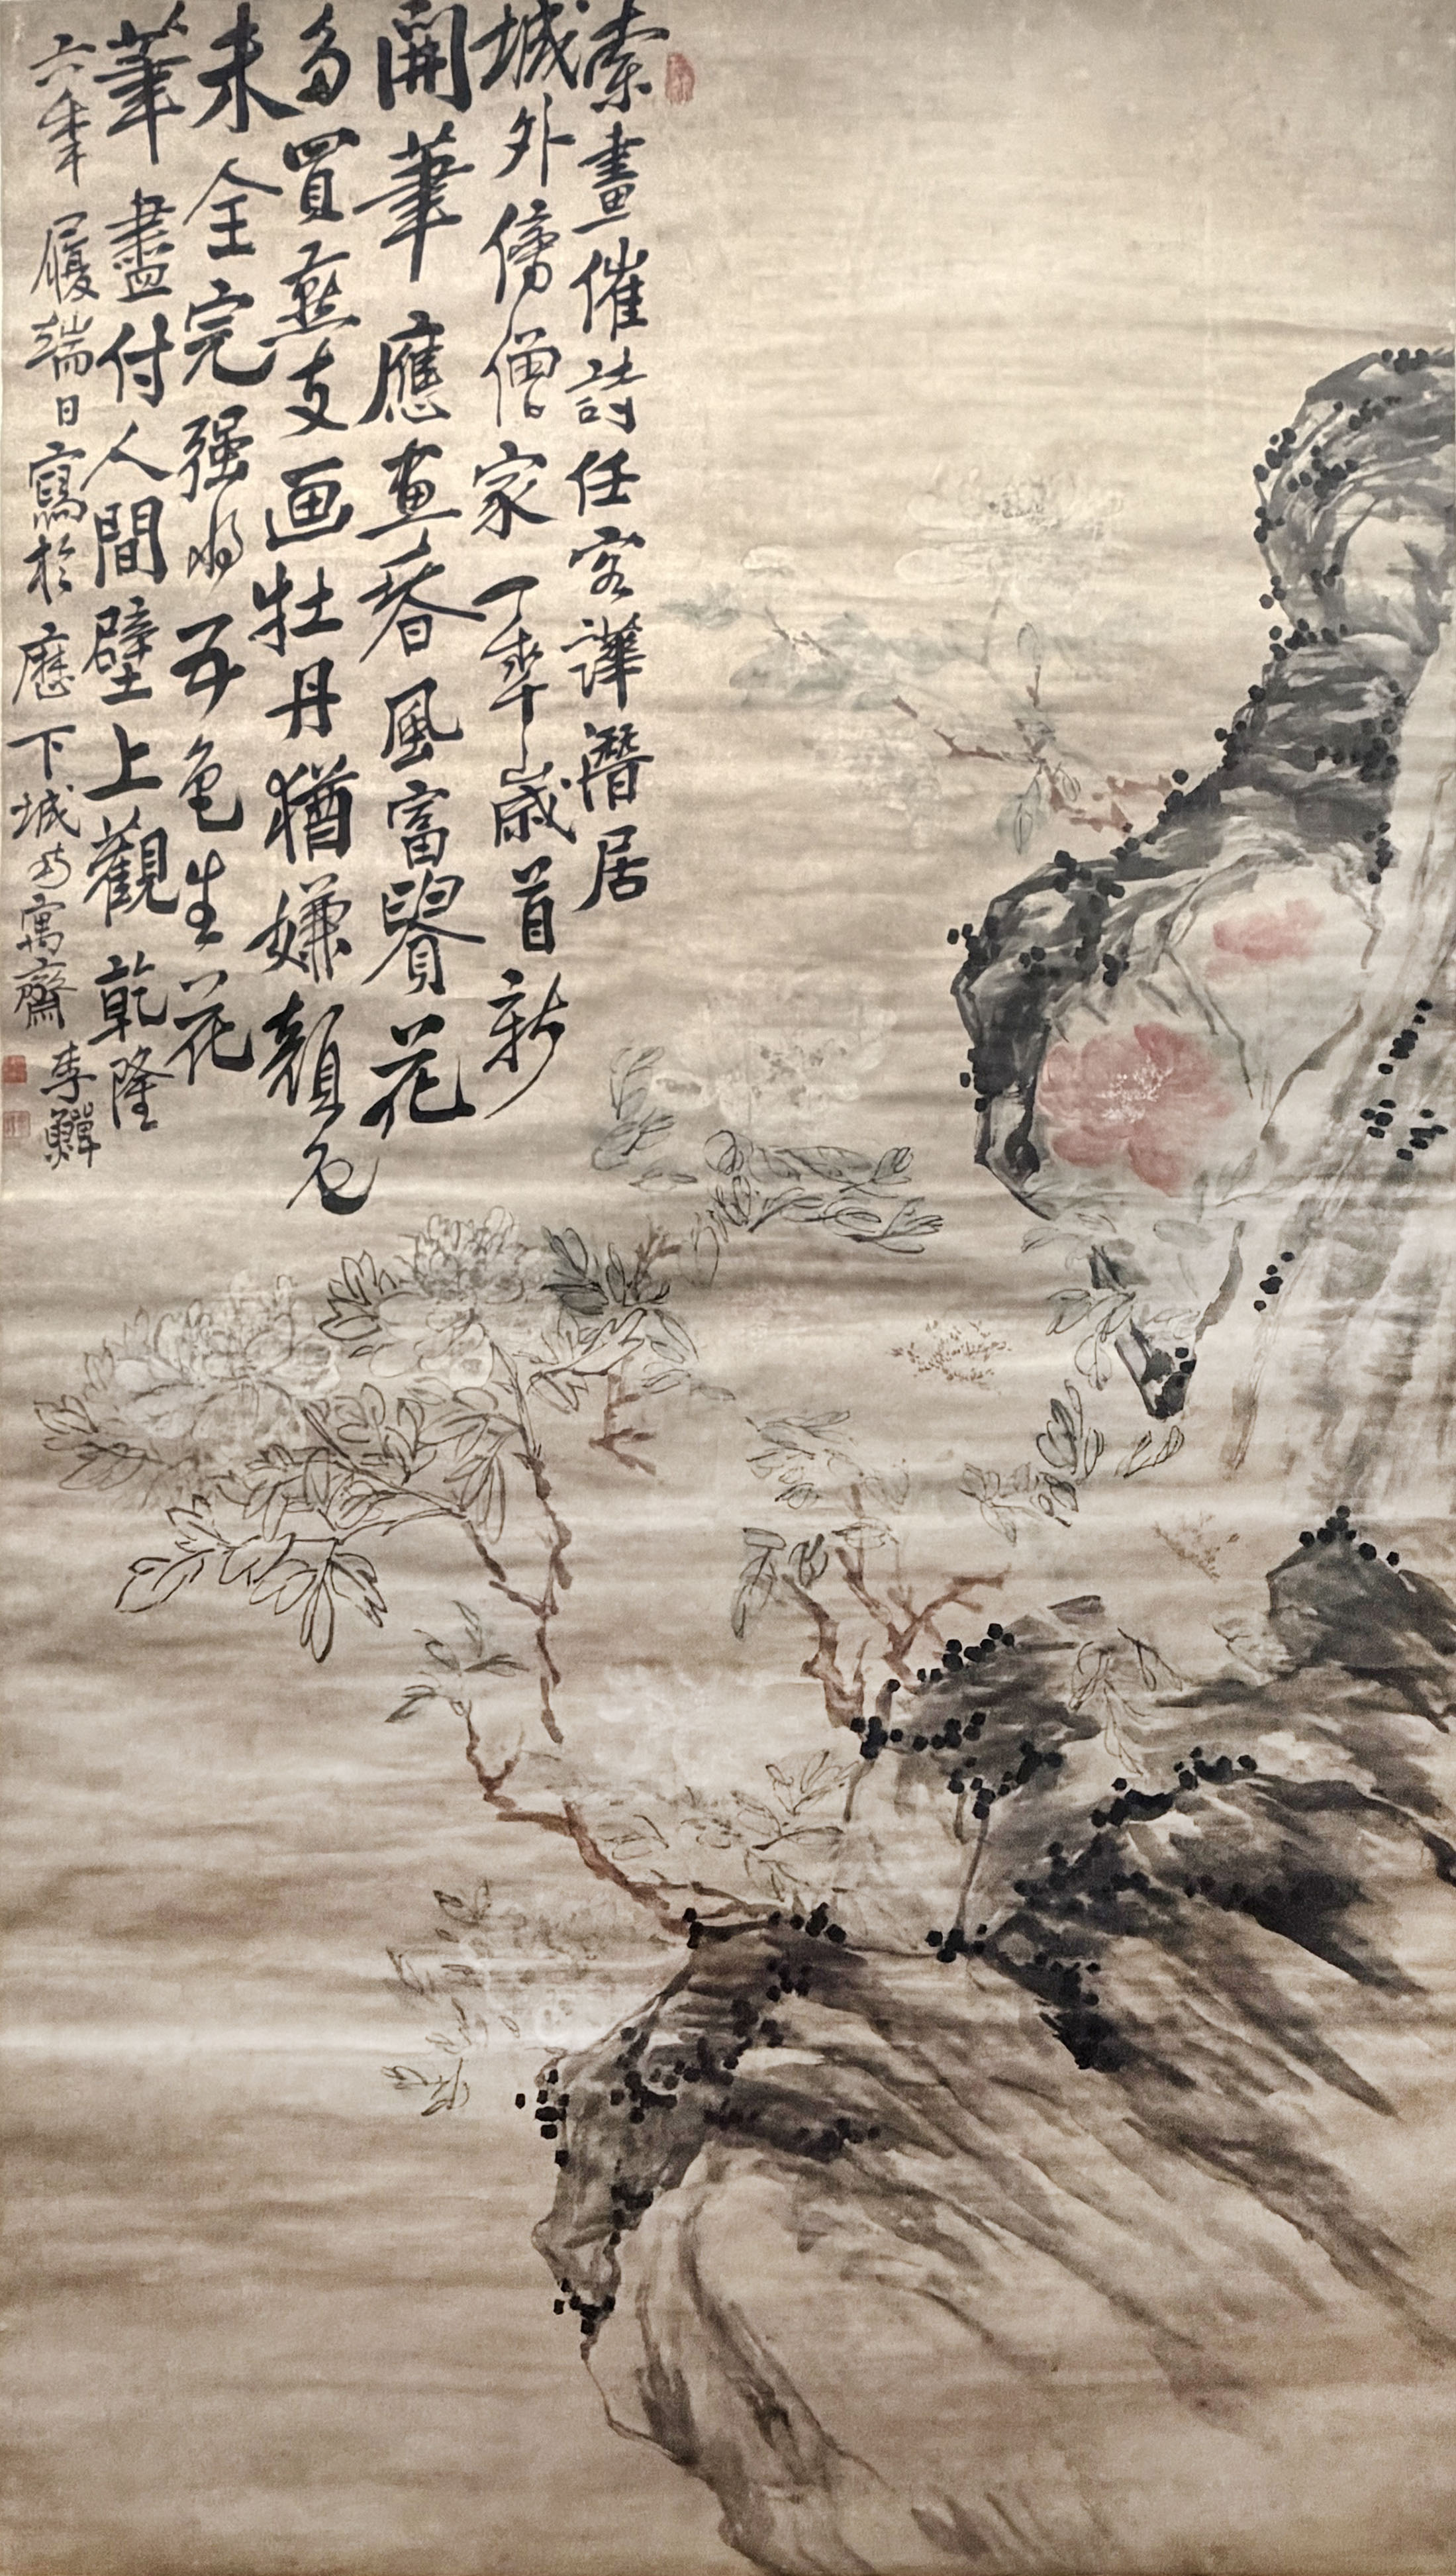 索畫催詩任客譁潛居
城外傍僧家丁年歲首新
開筆應畫春風富貴花
多買燕支画牡丹猶嫌顏色
未全完強将五色生花
筆盡付人間壁上觀乾隆
六年履端日寫於歷下城南寓齋
李鱓